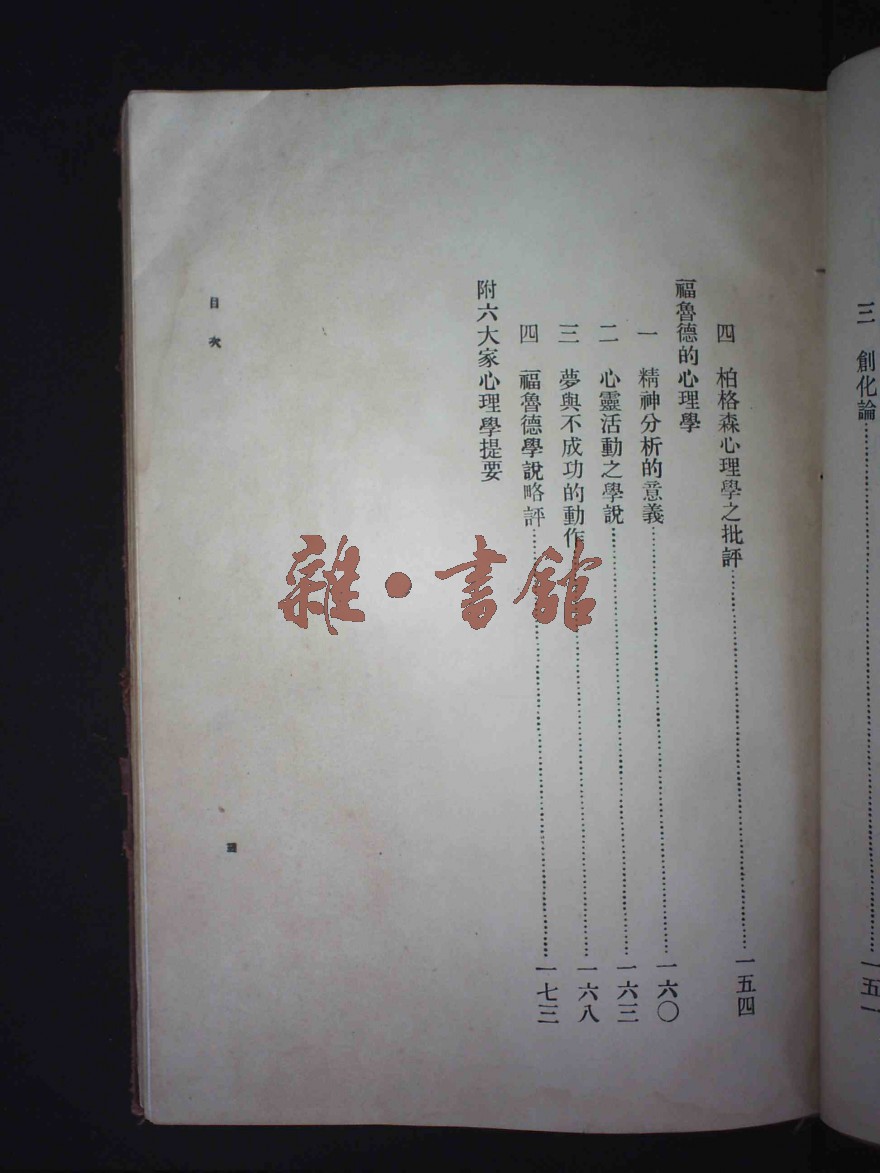 三 創化論……一五一
四 柏格森心理學之批評……一五四
福魯德的心理學
一 精神分析的意義……一六〇
二 心靈活動之學說……一六三
三 夢與不成功的動作……一六八
四 福魯德學說略評……一七三
附六大家心理學提要
目次
三
雜·書館